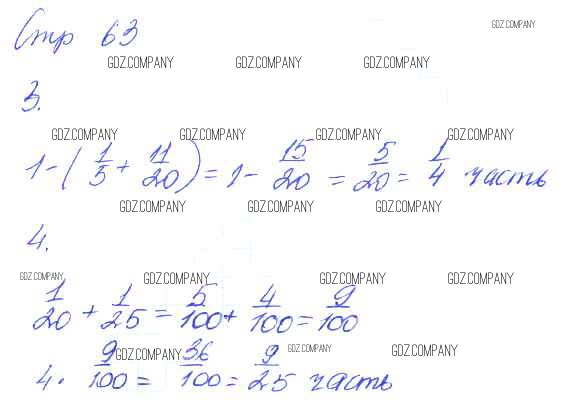 Стр 63
GDZ.COMPANY
GDZ.COMPANY GDZ.COMPANY GDZ.COMPANY
3.
GDZ.COMPANY GDZ.COMPANY GDZ.COMPANY GDZ.COMPANY
1-(1/5 + 11/20) = 1 - 15/20 = 5/20 = 1/4 часть
GDZ.COMPANY GDZ.COMPANY GDZ.COMPANY
4.
GDZ.COMPANY GDZ.COMPANY GDZ.COMPANY GDZ.COMPANY
1/20 + 1/25 = 5/100 + 4/100 = 9/100
GDZ.COMPANY GDZ.COMPANY GDZ.COMPANY
4 · 9/100 = 36/100 = 9/25 часть